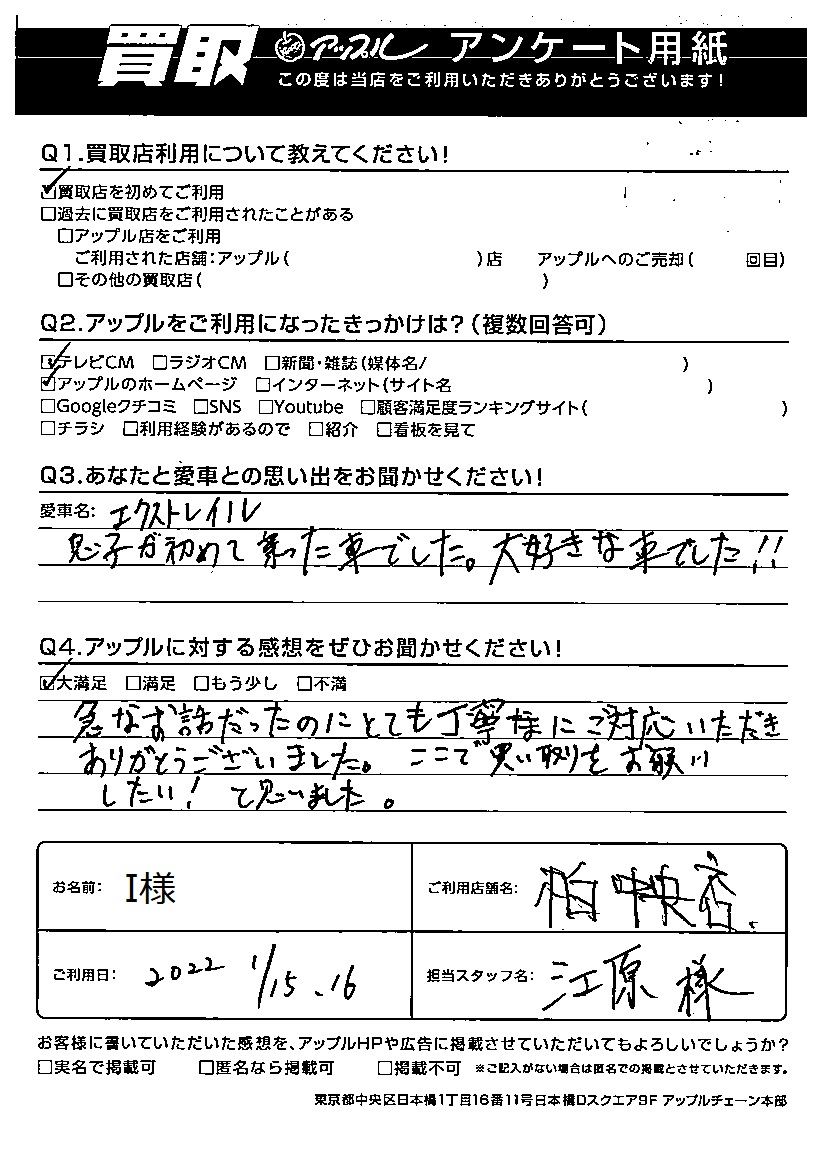 買取 アップル アンケート用紙
この度は当店をご利用いただきありがとうございます!
Q1.買取店利用について教えてください!
☑買取店を初めてご利用
□過去に買取店をご利用されたことがある
□アップル店をご利用
ご利用された店舗:アップル( )店 アップルへのご売却( 回目)
□その他の買取店( )
Q2.アップルをご利用になったきっかけは?(複数回答可)
☑テレビCM □ラジオCM □新聞・雑誌(媒体名/ )
☑アップルのホームページ □インターネット(サイト名 )
□Googleクチコミ □SNS □Youtube □顧客満足度ランキングサイト( )
□チラシ □利用経験があるので □紹介 □看板を見て
Q3.あなたと愛車との思い出をお聞かせください!
愛車名: エクストレイル
息子が初めて乗った車でした。大好きな車でした!!
Q4.アップルに対する感想をぜひお聞かせください!
☑大満足 □満足 □もう少し □不満
急なお話だったのにとても丁寧なにご対応いただき
ありがとうございました。 ここで買い取りをお願い
したい! て思いました。
お名前: I様
ご利用店舗名: 柏中央店.
ご利用日: 2022 1/15.16
担当スタッフ名: 江原様
お客様に書いていただいた感想を、アップルHPや広告に掲載させていただいてもよろしいでしょうか?
□実名で掲載可 □匿名なら掲載可 □掲載不可 ※ご記入がない場合は匿名での掲載とさせていただきます。
東京都中央区日本橋1丁目16番11号日本橋Dスクエア9F アップルチェーン本部